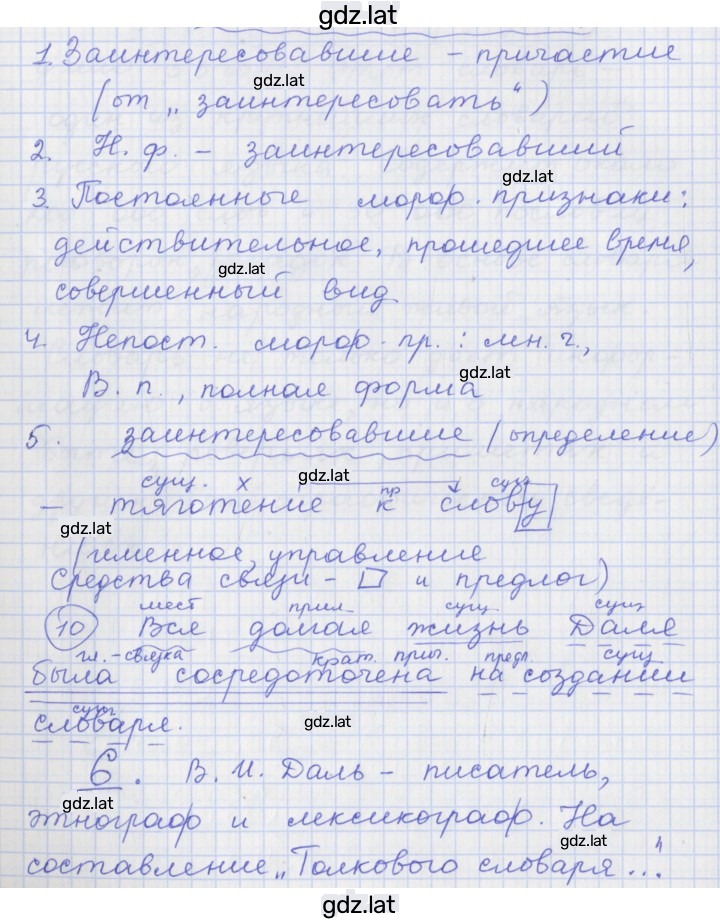 gdz.lat
1. Заинтересовавшие – причастие
gdz.lat
(от „заинтересовать“)
2. Н. ф. – заинтересовавший
gdz.lat
3. Постоянные морф. признаки:
действительное, прошедшее время,
gdz.lat
совершенный вид
4. Непост. морф. пр. : мн. ч.,
gdz.lat
В. п., полная форма
5. заинтересовавшие (определение)
gdz.lat
сущ. х пр сущ
– тяготение к слову
gdz.lat
(именное, управление
Средства связи – и предлог)
мест прил. сущ. сущ
10 Вся долгая жизнь Даля
гл.-связка крат. прич. предл. сущ
была сосредоточена на создании
сущ
словаря.
gdz.lat
6. В. И. Даль – писатель,
gdz.lat
этнограф и лексикограф. На
gdz.lat
составление „Толкового словаря ..."
gdz.lat